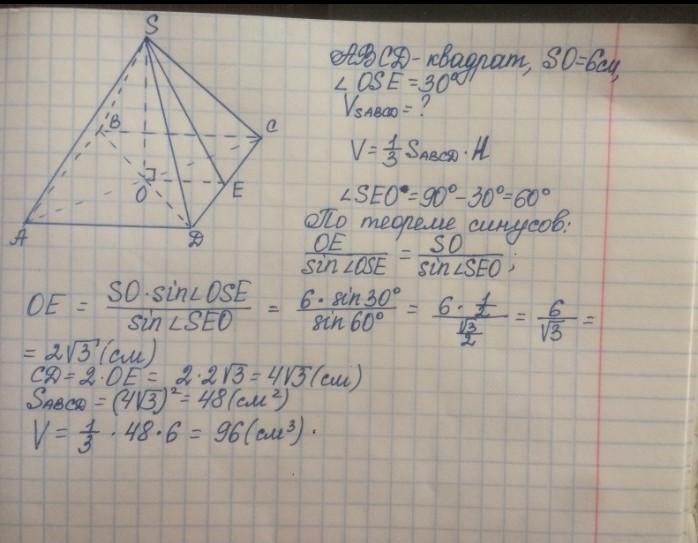 S
B
C
O
E
A
D
ABCD - квадрат, SO=6см,
∠OSE=30°
V_SABCD = ?
V = 1/3 S_ABCD · H
∠SEO = 90° - 30° = 60°
По теореме синусов:
OE / sin∠OSE = SO / sin∠SEO ;
OE = SO · sin∠OSE / sin∠SEO = 6 · sin30° / sin60° = 6 · 1/2 / √3/2 = 6/√3 =
= 2√3 (см)
CD = 2 · OE = 2 · 2√3 = 4√3 (см)
S_ABCD = (4√3)² = 48 (см²)
V = 1/3 · 48 · 6 = 96 (см³) .